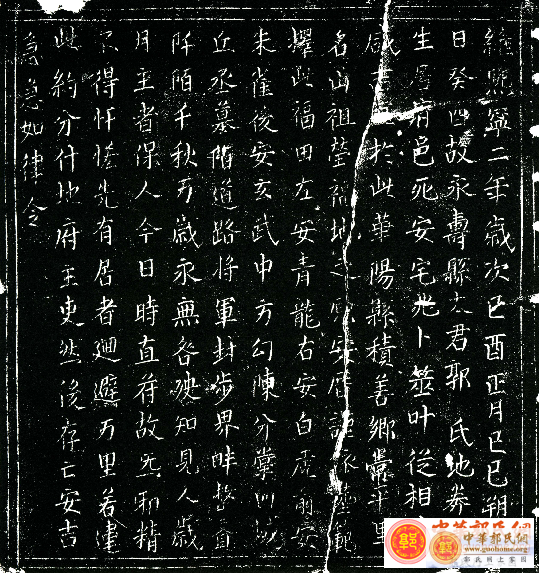 維熈寧二年歲次己酉正月己巳朔
日癸酉故永壽縣太君郭 氏地券
生居府邑死安宅兆卜筮叶從相
咸吉於此華陽縣積善鄉平里
名山祖塋福地之安厝謹依
擇此福田左安青龍右安白虎前安
朱雀後安玄武中方勾陳分擘四
丘丞墓陌道路將軍封步界畔整
阡陌千秋万歲永無咎殃知見人歲
月主者保人今日時直符故炁邪精
不得忏恡先有居者廻避万里若違
此約分付地府主吏然後存亡安吉
急急如律令
中華郭氏網
中華郭氏網
www.guohome.org
郭氏網上家園